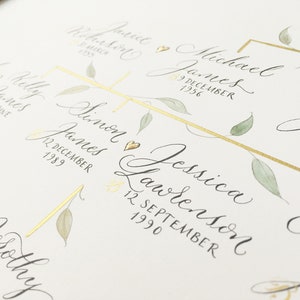 Janice
Robinson
Michael
James
9 DECEMBER
1956
Kelly
DECEMBER
Simon
James
12 DECEMBER
1989
Jessica
Lawrenson
12 SEPTEMBER
1990